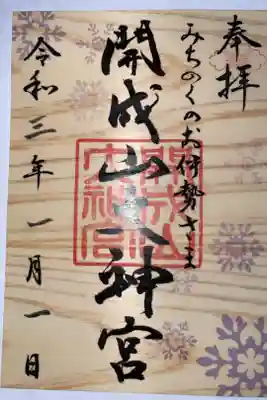 奉拝
みちのくのお伊勢さま
開成山大神宮
令和三年一月一日
開成山大神宮